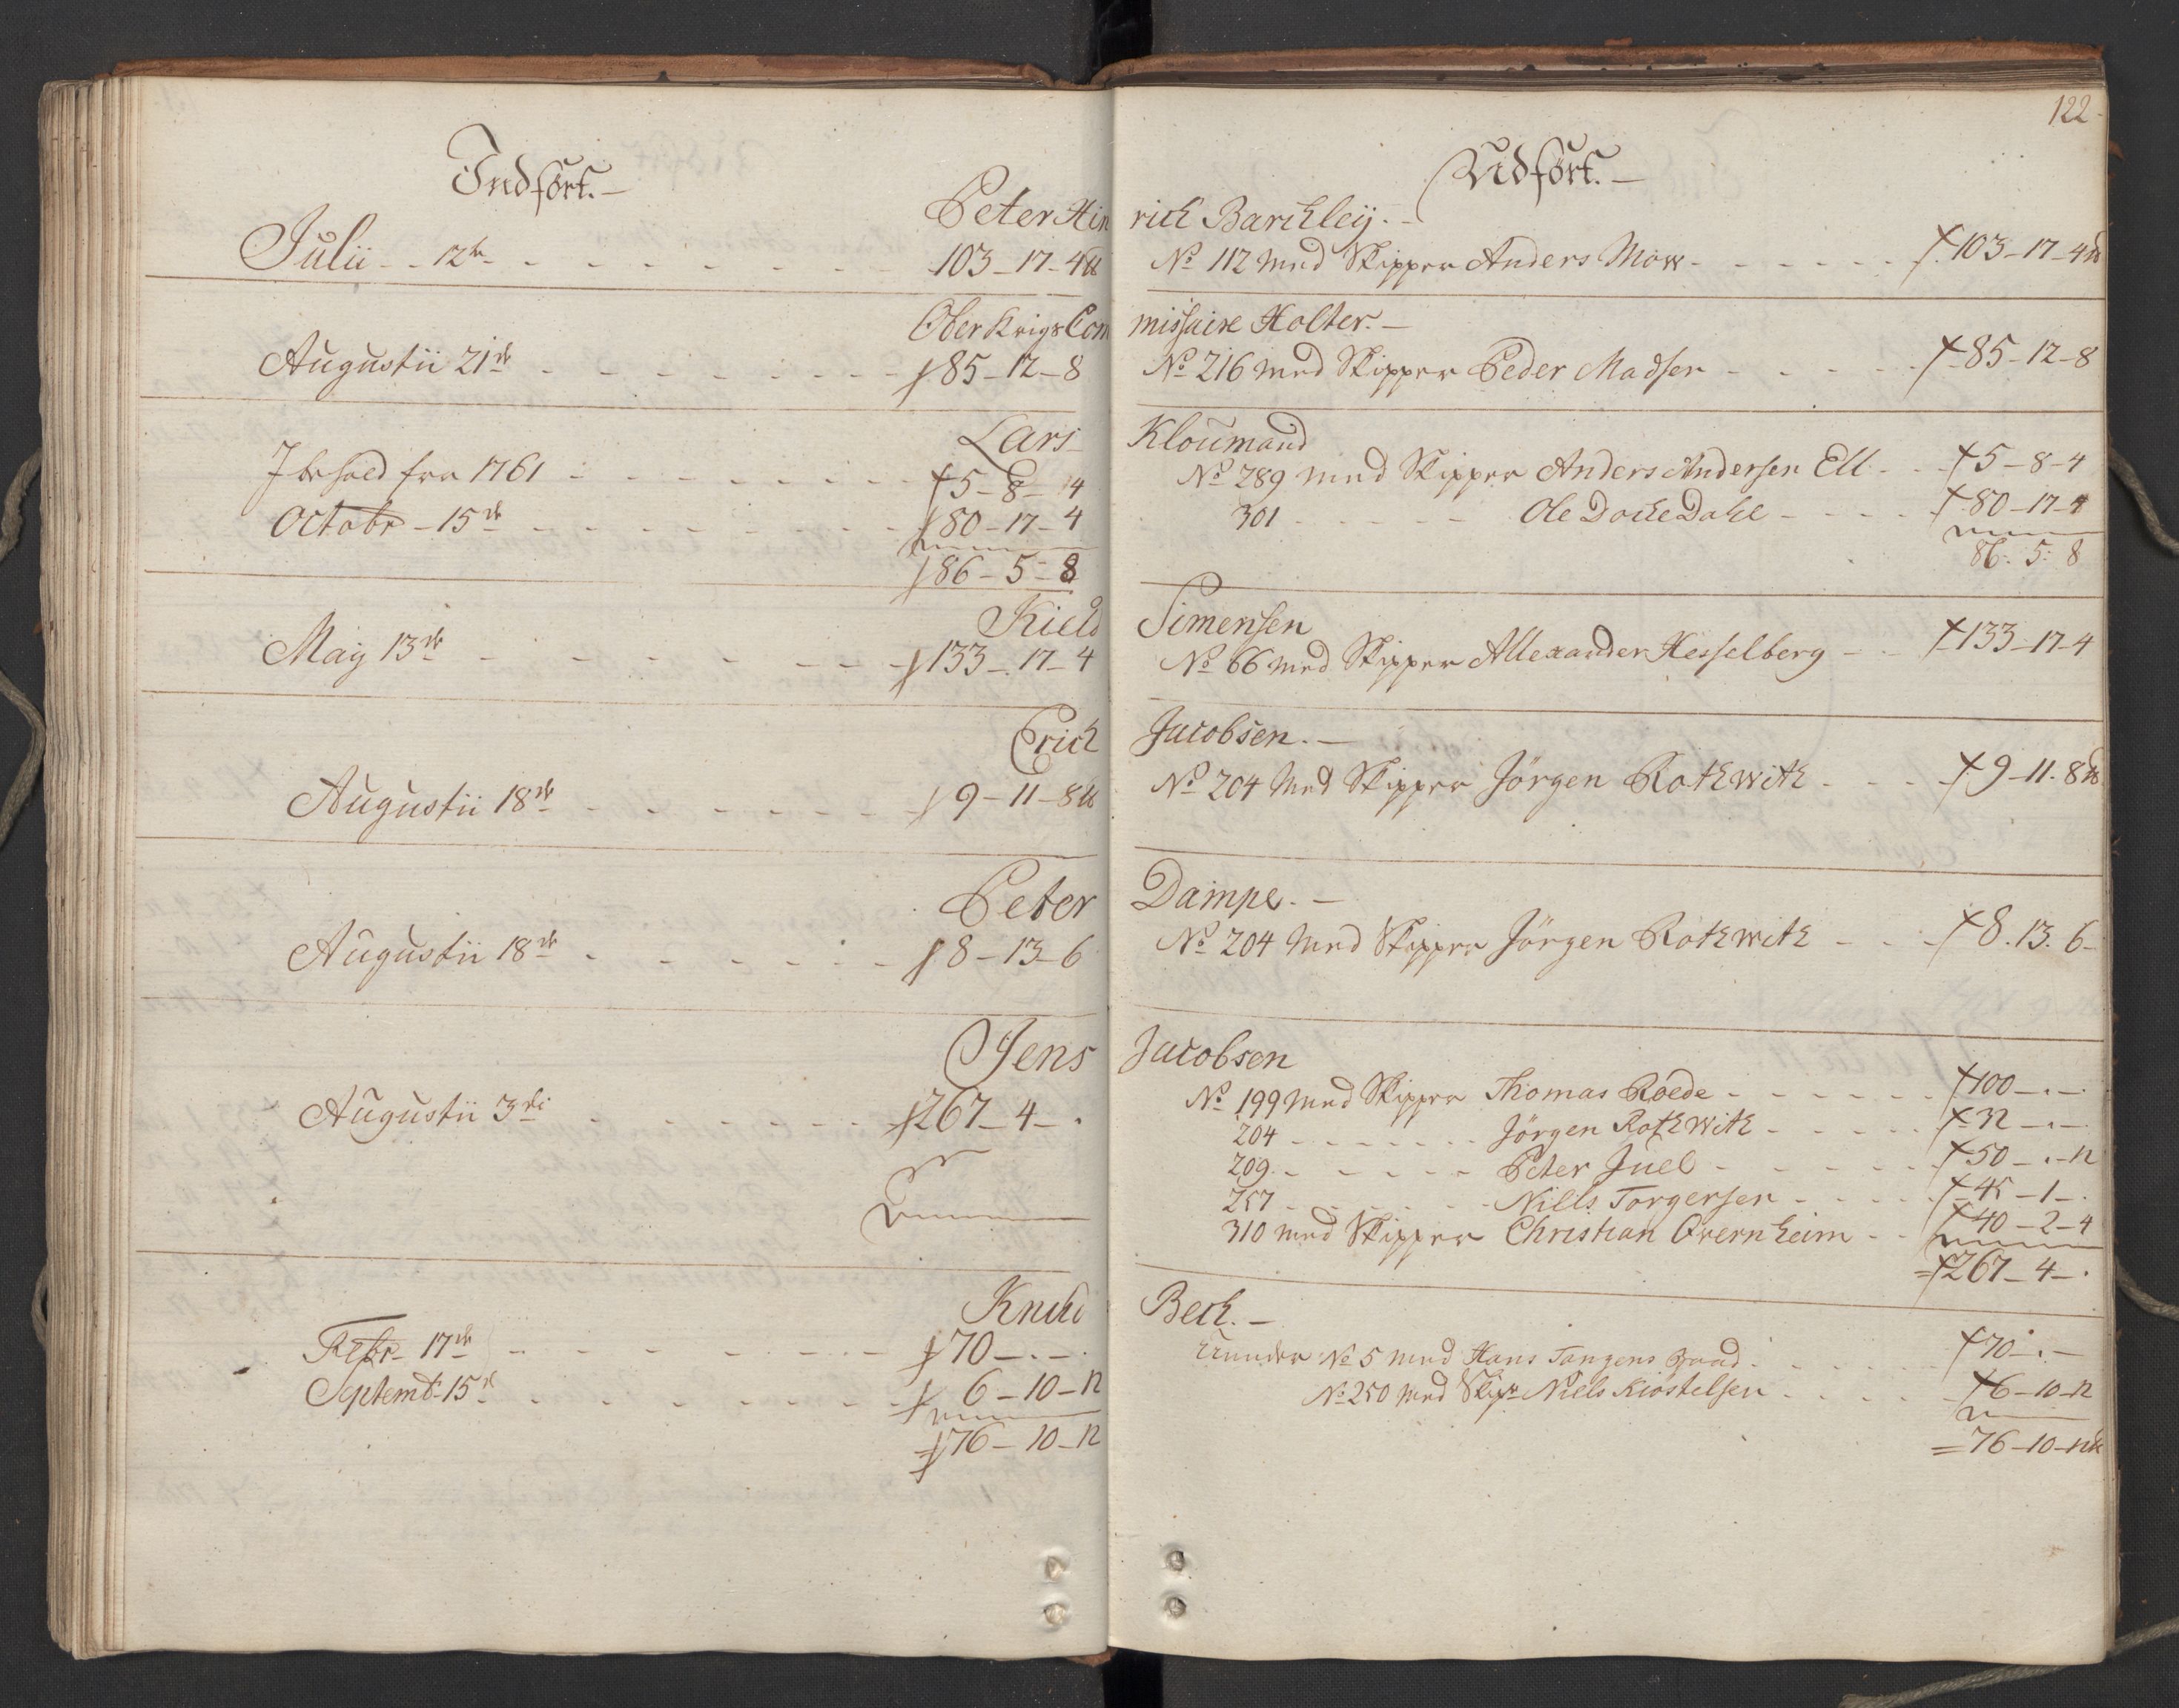 122
Indført.
Udført.
Peter Hin
rich Barchleij.
Julii 12te 103-17-4
No 112 med Skipper Anders Mow 103-17-4
Ober Krigs Com
missaire Holter.
Augustii 21de 85-12-8
No 216 med Skipper Peder Madsen 85-12-8
Lars
Kloumand
Jbehold fra 1761 5-8-4
No 289 med Skipper Anders Andersen Ell 5-8-4
Octobr 15de 80-17-4
301 Ole Docke Dahl 80-17-4
86-5-8
86: 5: 8
Kield
Simensen
Maij 13de 133-17-4
No 66 med Skipper Allexander Hesselberg 133-17-4
Erich
Jacobsen.
Augustii 18de 9-11-8
No 204 med Skipper Jörgen Rothwith 9-11-8
Peter
Dampe.
Augustii 18de 8-13-6
No 204 med Skipper Jörgen Rothwith 8.13.6
Jens
Jacobsen
Augustii 3di 267-4-.
No 199 med Skipper Thomas Roede 100-.-
204 Jörgen Rothwith 32-.-
209 Peter Juel 50-.-12
257 Niells Torgersen 45-1-.
310 med Skipper Christian Overnheim 40-2-4
=267-4-.
Knud
Bech.
Febr 17de 70-.-.
Under No 5 med Hans Tangens Baad 70-.-
Septemb 15d 6-10-12
No 250 med Skipr Niels Kiöstelsen 6-10-12
76-10-12
=76-10-12